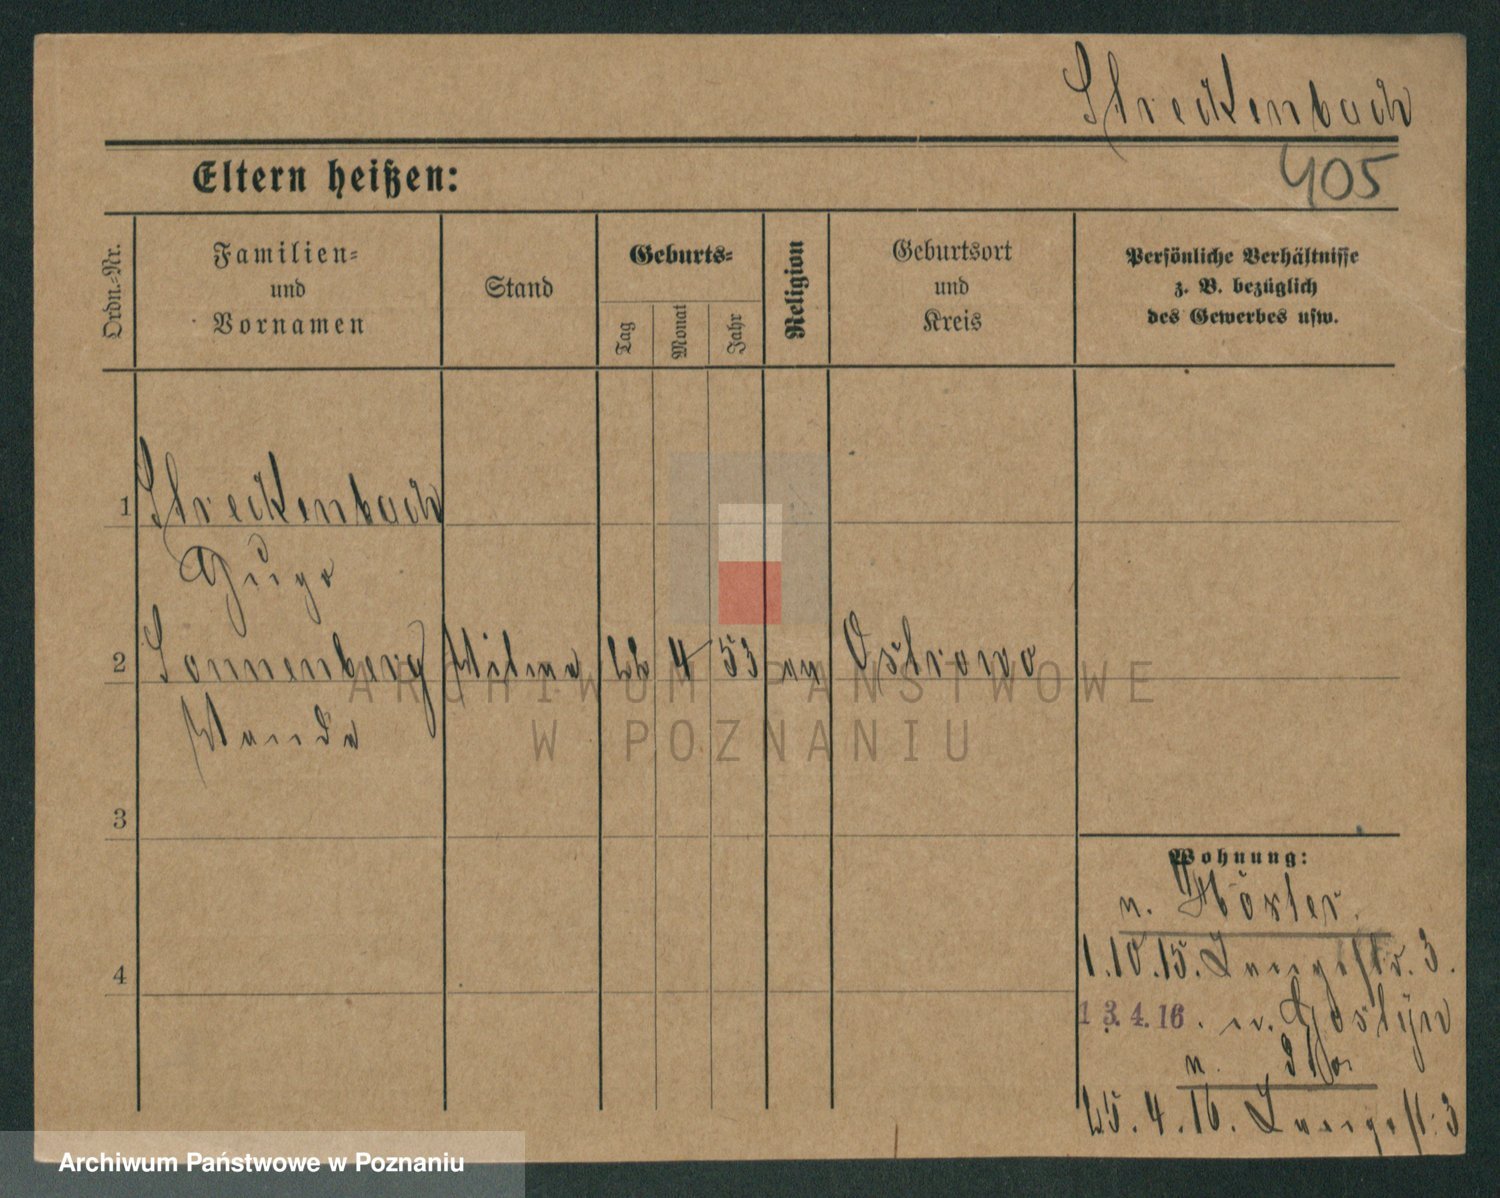 Streckenbach
405
Eltern heißen:
Ordn.-Nr.
Familien-
und
Vornamen
Stand
Geburts-
Tag
Monat
Jahr
Religion
Geburtsort
und
Kreis
Persönliche Verhältnisse
z. B. bezüglich
des Gewerbes usw.
1 Streckenbach
Hugo
2 Sonnenberg Witwe 22 4 53 ev Ostrowo
Wanda
3
4
Wohnung:
n. Höxter.
1.10.15. Langestr. 3.
13.4.16. n. Gostyn
n.
25.4.16. Langestr. 3
ARCHIWUM PAŃSTWOWE
W POZNANIU
Archiwum Państwowe w Poznaniu